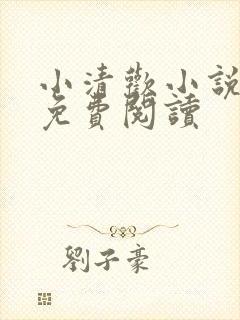 小清歡小說
免費閱讀
劉子豪